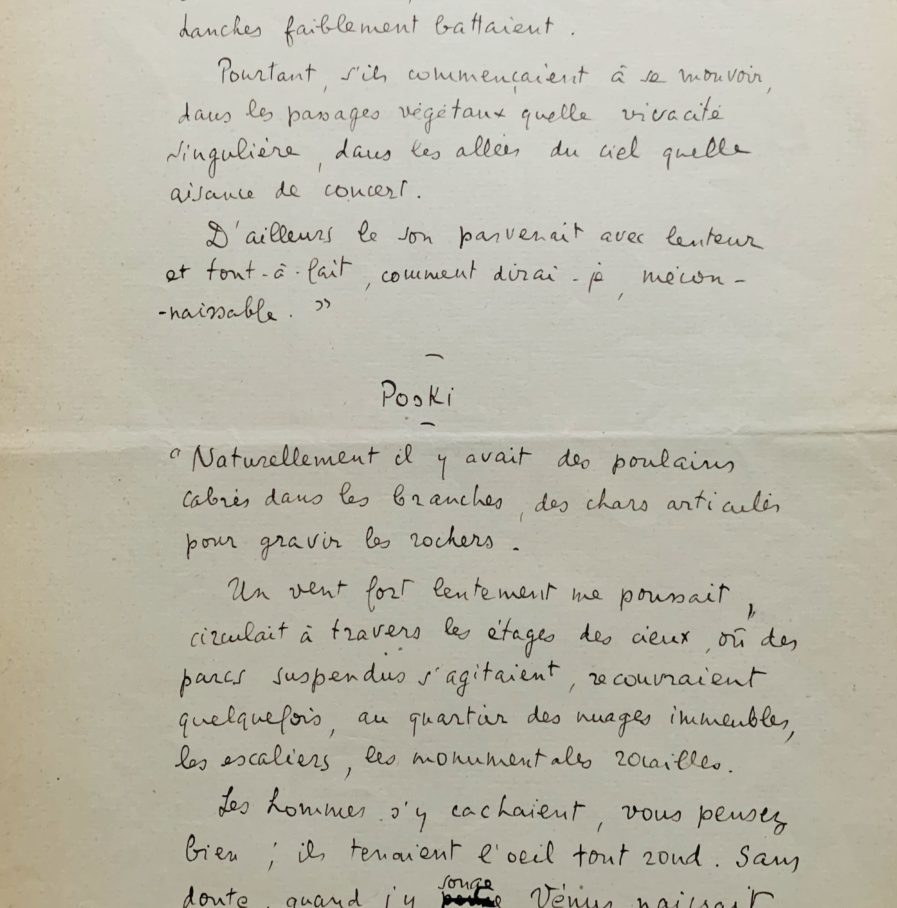 hanches faiblement battaient.
Pourtant, s'ils commençaient à se mouvoir,
dans les passages végétaux quelle vivacité
singulière, dans les allées du ciel quelle
aisance de concert.
D'ailleurs le son parvenait avec lenteur
et tout-à-fait, comment dirai-je, mécon-
-naissable. »
Poski
"Naturellement il y avait des poulains
cabrés dans les branches, des chars articulés
pour gravir les rochers.
Un vent fort lentement me poussait,
circulait à travers les étages des cieux, où des
parcs suspendus s'agitaient, recouvraient
quelquefois, au quartier des nuages immeubles,
les escaliers, les monumentales rocailles.
Les hommes s'y cachaient, vous pensez
bien ; ils tenaient l'oeil tout rond. Sans
songe
doute, quand j'y Vénus naissait